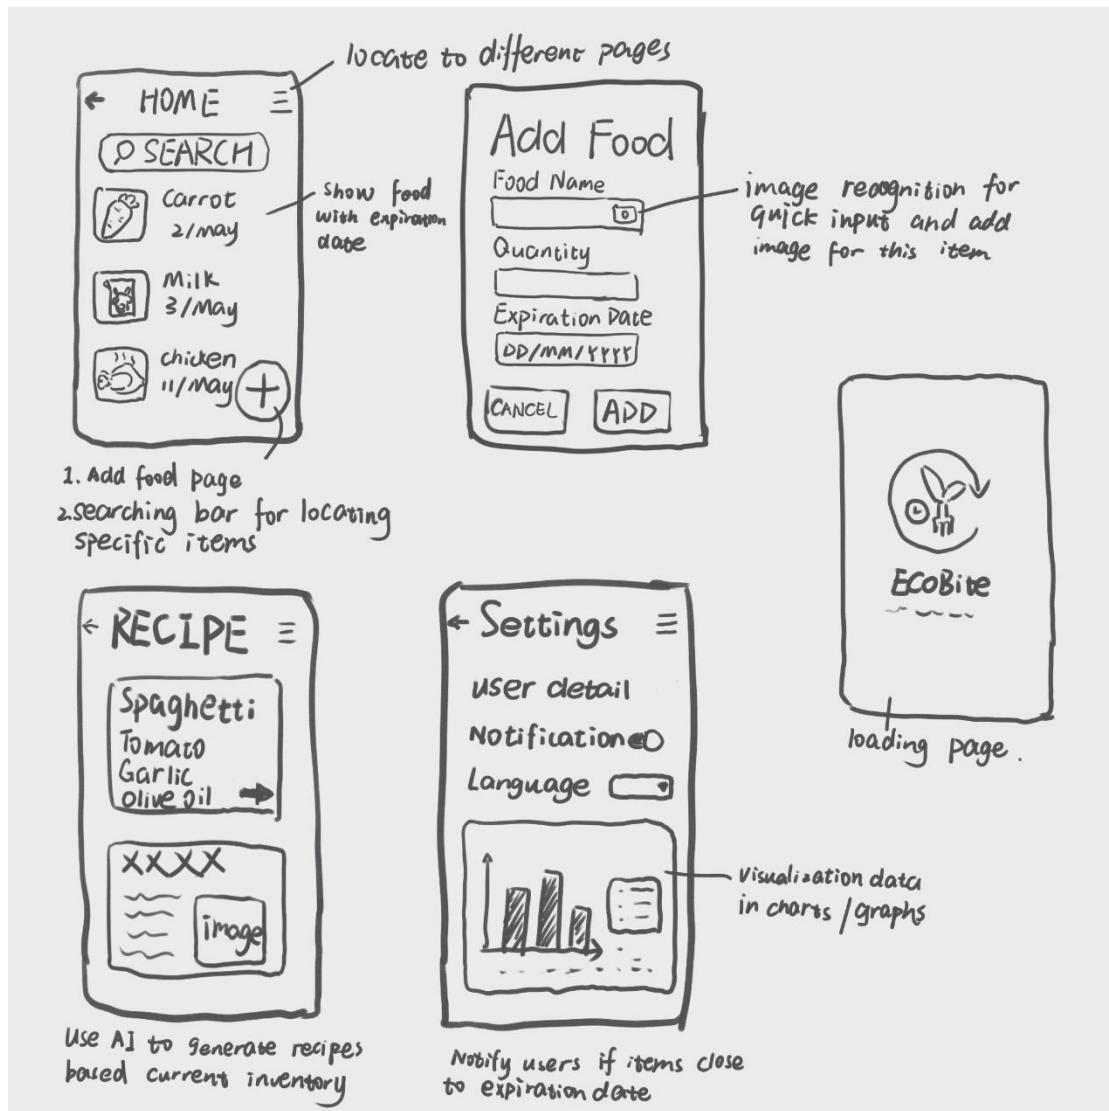 locate to different pages
HOME
SEARCH
Carrot
2/May
Milk
3/May
chicken
11/May
show food
with expiration
date
1. Add food page
2. searching bar for locating
specific items
Add Food
Food Name
Quantity
Expiration Date
DD/MM/YYYY
CANCEL
ADD
image recognition for
quick input and add
image for this item
ECOBite
loading page.
RECIPE
Spaghetti
Tomato
Garlic
olive oil
XXXX
image
Use AI to generate recipes
based current inventory
Settings
user detail
Notification
Language
visualization data
in charts / graphs
Notify users if items close
to expiration date